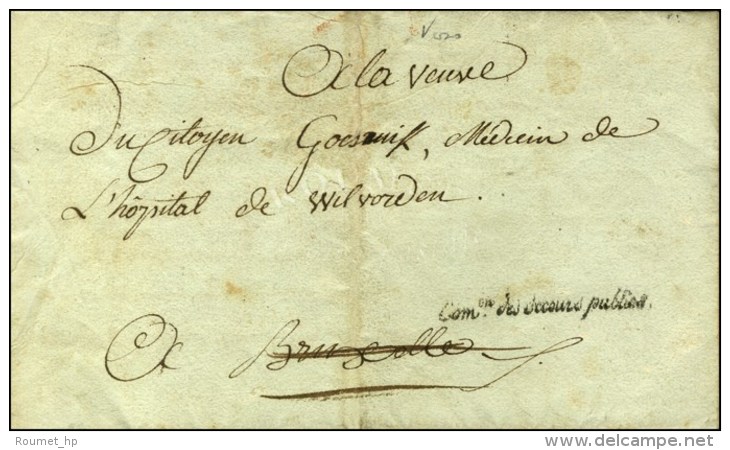 Vers
A la veuve
Du Citoyen Goesnuik, Médecin de
L'hôpital de Wilvorden.
Com.on des secours publics.
A Bruxelle
Roumet_hp
delcampe.net